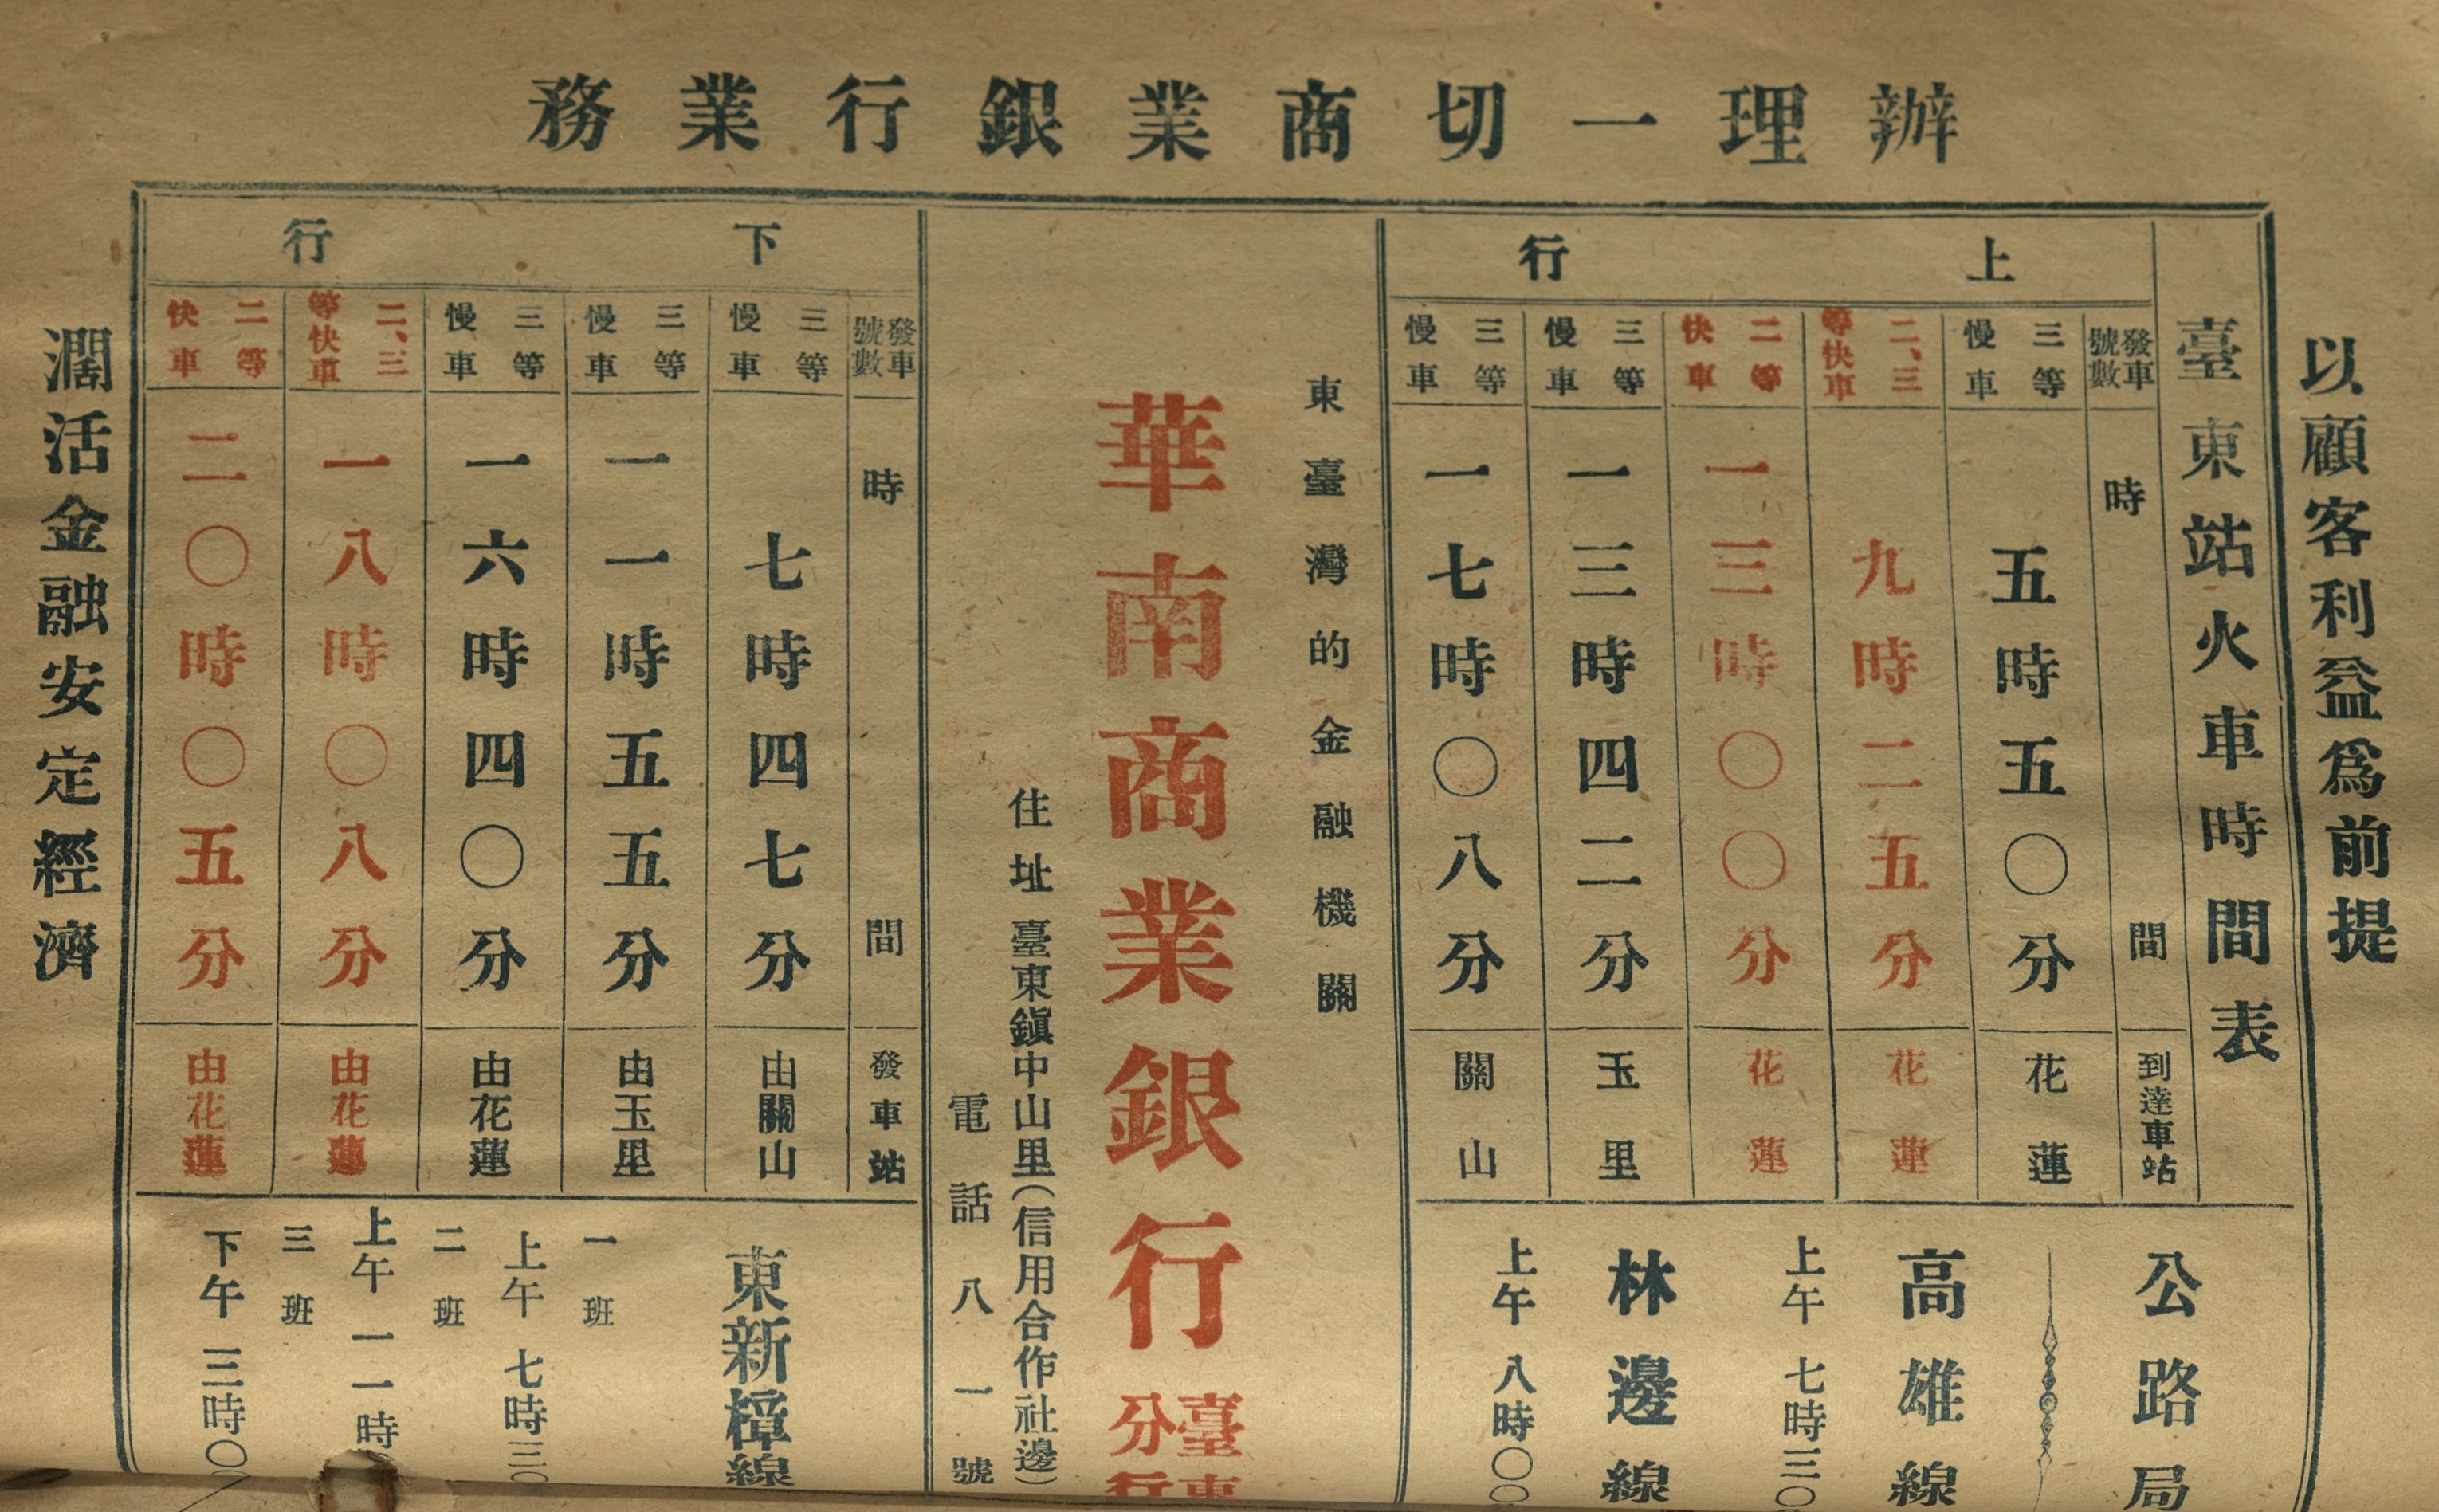 辦理一切商業銀行業務
以顧客利益爲前提
臺東站火車時間表
上行
發車號數 時間 到達車站
三等慢車 五時五〇分 花蓮
二、三等快車 九時二五分 花蓮
二等快車 一三時〇〇分 花蓮
三等慢車 一三時四二分 玉里
三等慢車 一七時〇八分 關山
公路局
高雄線
上午七時三〇
林邊線
上午八時〇〇
東臺灣的金融機關
華南商業銀行臺東分行
住址臺東鎭中山里(信用合作社邊)
電話八一號
下行
發車號數 時間 發車站
三等慢車 七時四七分 由關山
三等慢車 一一時五五分 由玉里
三等慢車 一六時四〇分 由花蓮
二、三等快車 一八時〇八分 由花蓮
二等快車 二〇時〇五分 由花蓮
東新樟線
一班
上午七時三〇
二班
上午一一時
三班
下午三時〇
濶活金融安定經濟